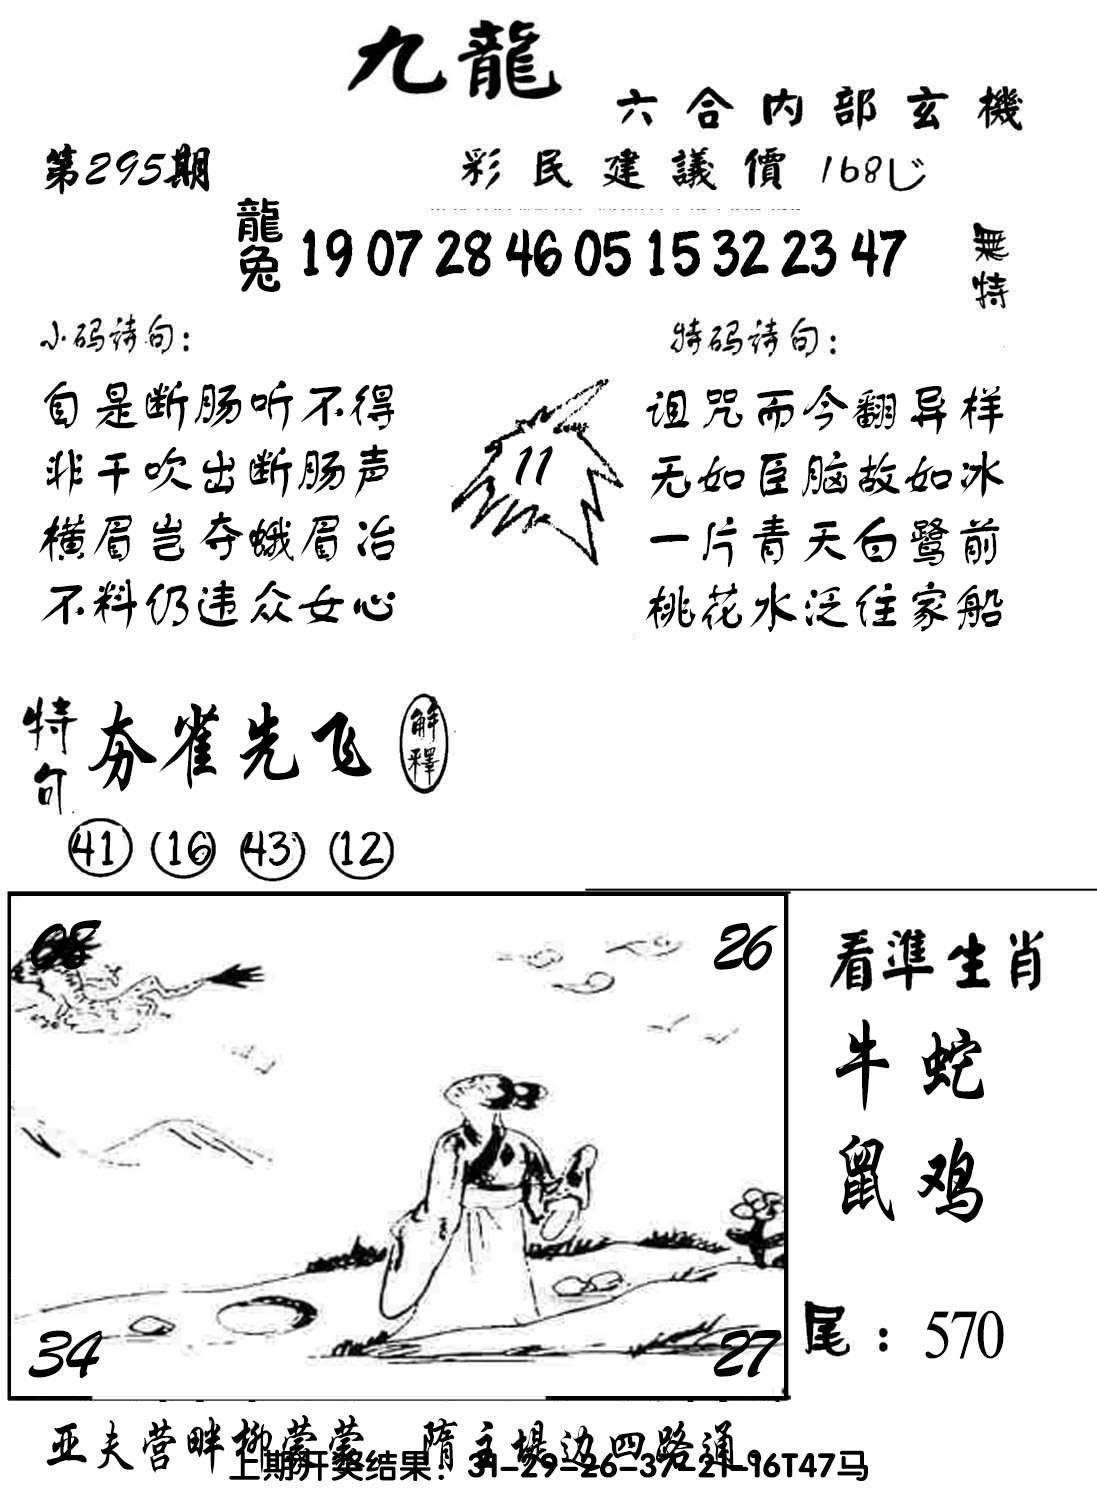 九龍
六合内部玄機
第295期
彩民建議價168
龍兔
19 07 28 46 05 15 32 23 47
無特
小码诗句：
自是断肠听不得
非干吹出断肠声
横眉岂夺蛾眉冶
不料仍违众女心
11
特码诗句：
诅咒而今翻异样
无如臣脑故如冰
一片青天白鹭前
桃花水泛住家船
特句
夯雀先飞
解釋
41 16 43 12
68
26
34
27
看準生肖
牛蛇
鼠鸡
尾：570
亚夫营畔柳蒙蒙 隋主堤边四路通。
上期开奖结果：31-29-26-37-21-16T47马